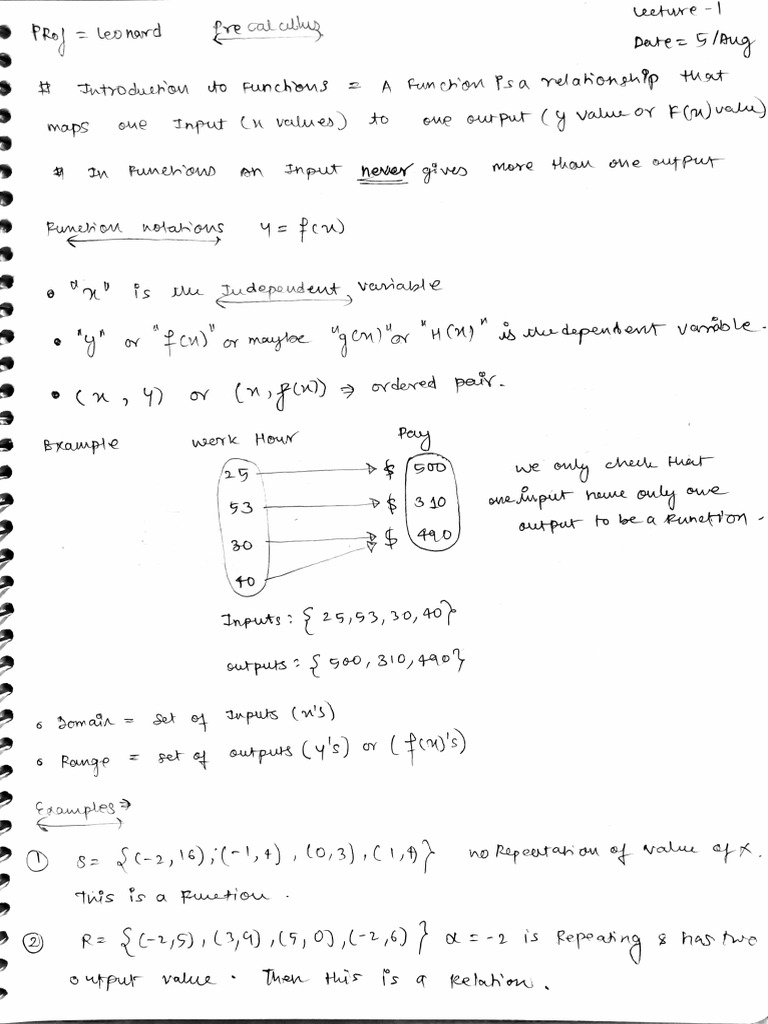 Prof = Leonard Precalculus Lecture - 1
Date = 5/Aug
# Introduction to Functions = A Function is a relationship that
maps one Input (x values) to one output (y value or F(x) value)
# In Functions an Input never gives more than one output
Function notations y = f(x)
• "x" is the Independent variable
• "y" or "f(x)" or maybe "g(x)" or "H(x)" is the dependent variable.
• (x, y) or (x, f(x)) ⇒ ordered pair.
Example Work Hour Pay
25 → $ 500
53 → $ 310
30 → $ 490
40
we only check that
one input have only one
output to be a Function.
Inputs: {25, 53, 30, 40}
outputs: {500, 310, 490}
• Domain = set of Inputs (x's)
• Range = set of outputs (y's) or (f(x)'s)
Examples ⇒
① S = {(-2, 16), (-1, 4), (0, 3), (1, 4)} no Repeatation of value of x.
This is a Function.
② R = {(-2, 5), (3, 9), (5, 0), (-2, 6)} x = -2 is Repeating & has two
output value. Then this is a Relation.